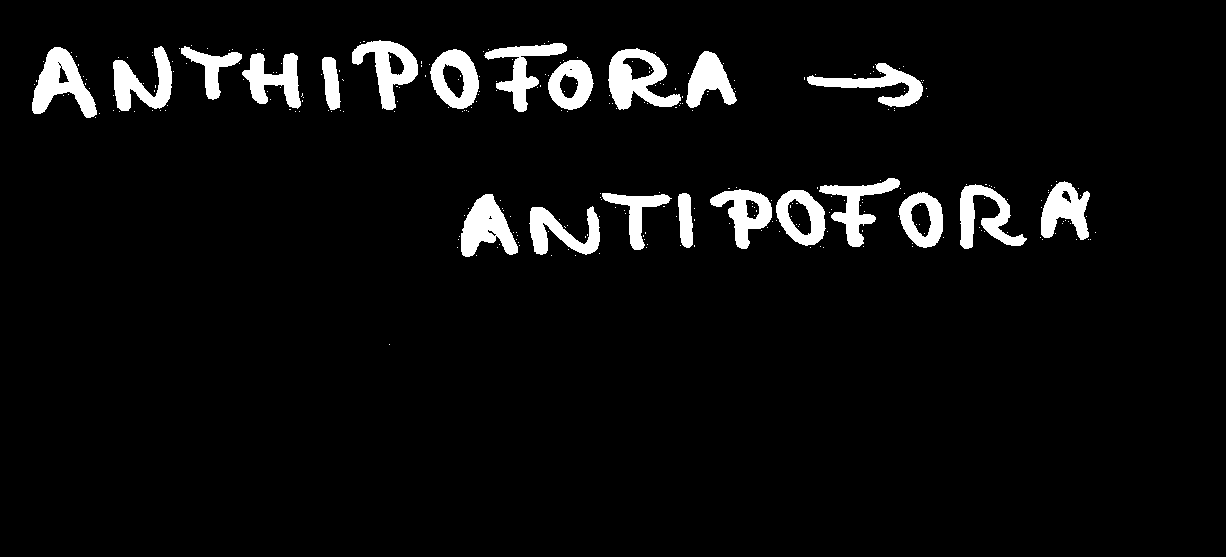 ANTHIPOFORA →
ANTIPOFORA